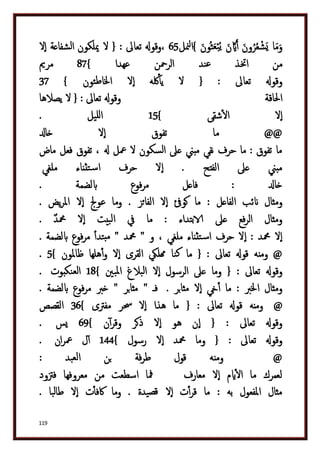 وَمَا يَشْعُرُونَ أَيَّانَ يُبْعَثُونَ }النمل65 ،وقوله تعالى : { لا يملكون الشفاعة إلا
من اتخذ عند الرحمن عهدا }87 مريم
وقوله تعالى : { لا يأكله إلا الخاطئون } 37
الحاقة وقوله تعالى : { لا يصلاها
إلا الأشقى }15 الليل .
@@ ما تفوق إلا خالد
ما تفوق : ما حرف نفي مبني على السكون لا عمل له ، تفوق فعل ماض
مبني على الفتح . إلا حرف استثناء ملغي
خالد : فاعل مرفوع بالضمة .
ومثال نائب الفاعل : ما كوفئ إلا الفائز . وما عولج إلا المريض .
ومثال الرفع على الابتداء : ما في البيت إلا محمدٌ .
إلا محمد : إلا حرف استثناء ملغي ، و " محمد " مبتدأ مرفوع بالضمة .
@ ومنه قوله تعالى : { ما كنا مهلكي القرى إلا وأهلها ظالمون }5 .
وقوله تعالى : { وما على الرسول إلا البلاغ المبين }18 العنكبوت .
ومثال الخبر : ما أخي إلا مثابر . فـ " مثابر " خبر مرفوع بالضمة .
@ ومنه قوله تعالى : { ما هذا إلا سحر مفترى }36 القصص
وقوله تعالى : { إن هو إلا ذكر وقرآن }69 يس .
وقوله تعالى : { وما محمد إلا رسول }144 آل عمران .
@ ومنه قول طرفة بن العبد :
لعمرك ما الأيام إلا معارف فما اسطعت من معروفها فتزود
مثال المفعول به : ما قرأت إلا قصيدة . وما كافأت إلا طالبا .
119